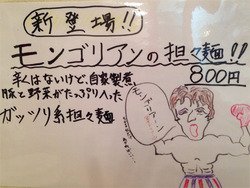 新登場!!
モンゴリアンの担々麺!!
800円
辛くはないけど、自家製煮
豚と野菜がたっぷり入った
ガッツリ系担々麺
モンゴリアン